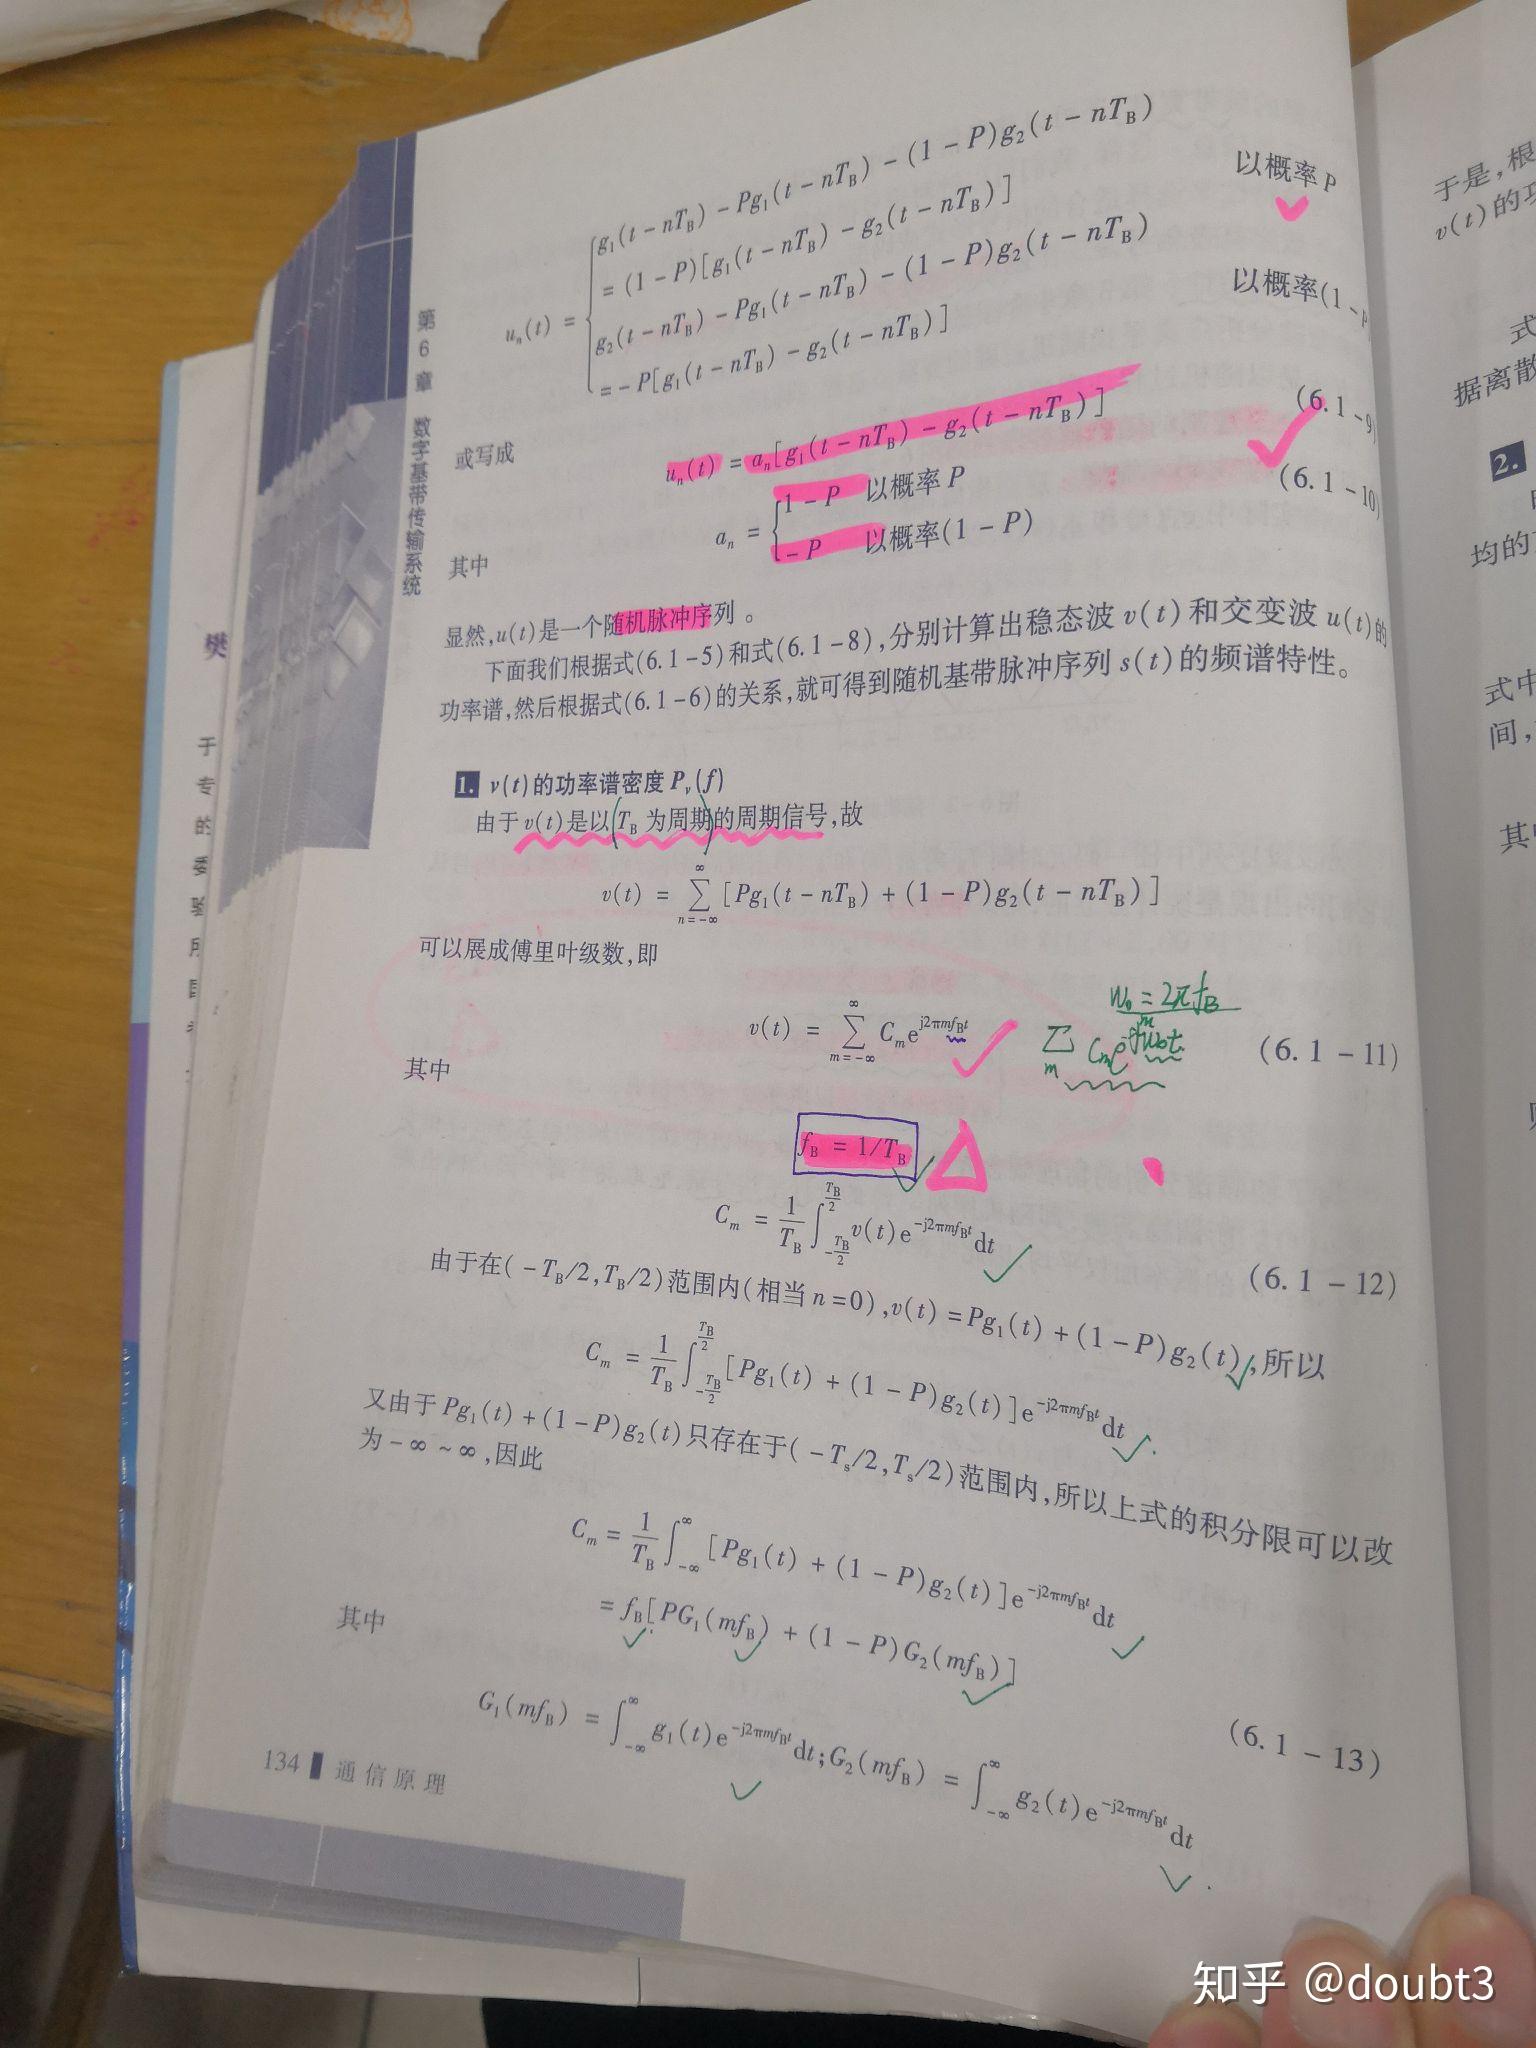 g₁(t − nT_B) − Pg₁(t − nT_B) − (1 − P)g₂(t − nT_B) 以概率 P
= (1 − P)[g₁(t − nT_B) − g₂(t − nT_B)]
uₙ(t) =
g₂(t − nT_B) − Pg₁(t − nT_B) − (1 − P)g₂(t − nT_B) 以概率(1 − P
= − P[g₁(t − nT_B) − g₂(t − nT_B)]
(6.1 − 9)
或写成
uₙ(t) = aₙ[g₁(t − nT_B) − g₂(t − nT_B)]
(6.1 − 10)
其中
aₙ = { 1 − P 以概率 P
− P 以概率(1 − P)
显然,u(t)是一个随机脉冲序列。
下面我们根据式(6.1−5)和式(6.1−8),分别计算出稳态波 v(t)和交变波 u(t)的
功率谱,然后根据式(6.1−6)的关系,就可得到随机基带脉冲序列 s(t)的频谱特性。
1. v(t)的功率谱密度 P_v(f)
由于 v(t)是以 T_B 为周期的周期信号,故
v(t) = ∑_{n=−∞}^{∞} [Pg₁(t − nT_B) + (1 − P)g₂(t − nT_B)]
可以展成傅里叶级数,即
W₀ = 2πf_B
v(t) = ∑_{m=−∞}^{∞} C_m e^{j2πmf_B t} (6.1 − 11)
其中
f_B = 1/T_B
C_m = 1/T_B ∫_{−T_B/2}^{T_B/2} v(t)e^{−j2πmf_B t}dt (6.1 − 12)
由于在(−T_B/2,T_B/2)范围内(相当 n=0),v(t)=Pg₁(t)+(1−P)g₂(t),所以
C_m = 1/T_B ∫_{−T_B/2}^{T_B/2} [Pg₁(t) + (1 − P)g₂(t)]e^{−j2πmf_B t}dt
又由于 Pg₁(t)+(1−P)g₂(t)只存在于(−T_s/2,T_s/2)范围内,所以上式的积分限可以改
为−∞~∞,因此
C_m = 1/T_B ∫_{−∞}^{∞} [Pg₁(t) + (1 − P)g₂(t)]e^{−j2πmf_B t}dt
= f_B[PG₁(mf_B) + (1 − P)G₂(mf_B)] (6.1 − 13)
其中
G₁(mf_B) = ∫_{−∞}^{∞} g₁(t)e^{−j2πmf_B t}dt;G₂(mf_B) = ∫_{−∞}^{∞} g₂(t)e^{−j2πmf_B t}dt
134 通信原理
第6章 数字基带传输系统
樊
于
专
的
委
验
于是,根
v(t)的功
式
据离散
2.
均的
式中
间,
其中
知乎 @doubt3